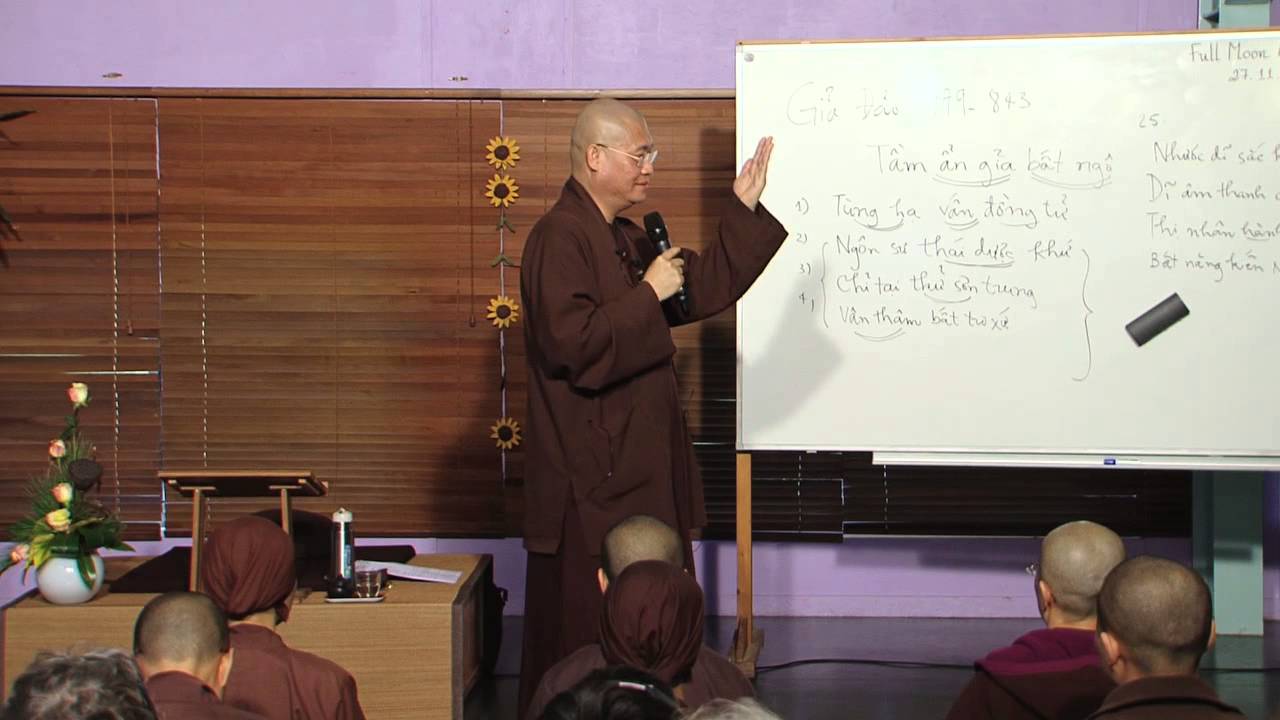 Full Moon
27.11
Giả Đảo 779-843
25.
Tầm ẩn giả bất ngộ
Nhược dĩ sắc
1) Tùng hạ vấn đồng tử
Dĩ âm thanh
2) Ngôn sư thái dược khứ
Thi nhân hành
3) Chỉ tại thử sơn trung
Bất năng kiến
4, Vân thâm bất tri xứ